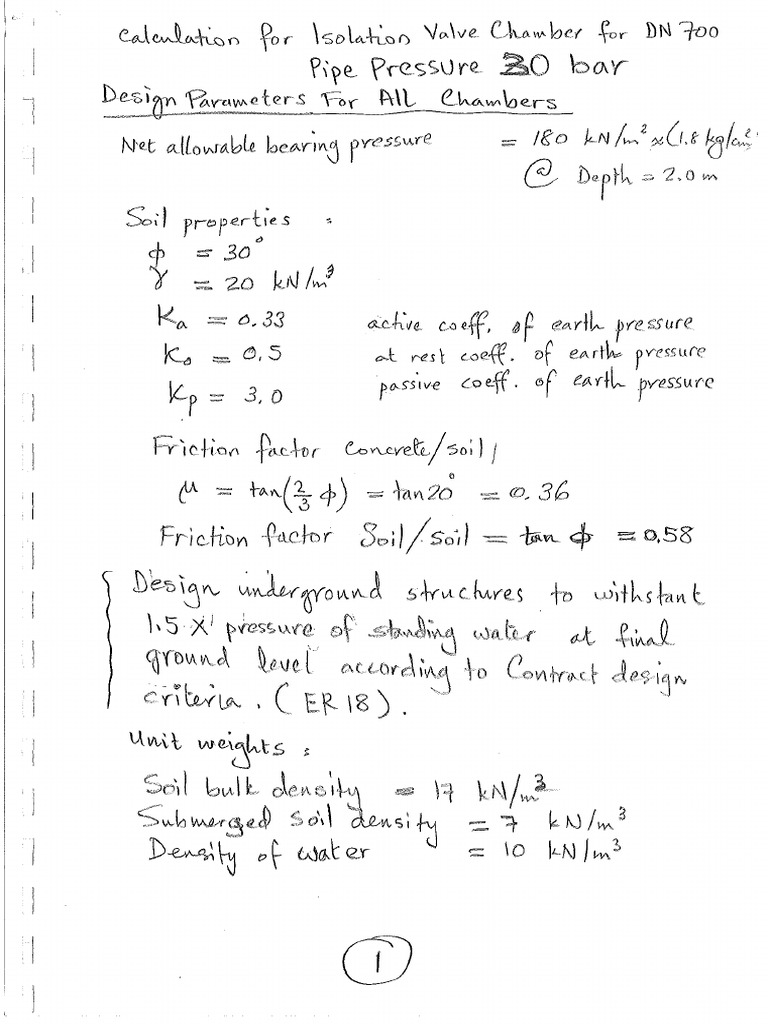 Calculation for Isolation Valve Chamber for DN 700
Pipe Pressure 30 bar
Design Parameters For All Chambers
Net allowable bearing pressure = 180 kN/m² ≈ (1.8 kg/cm²
@ Depth = 2.0 m
Soil properties :
ϕ = 30°
γ = 20 kN/m³
Ka = 0.33 active coeff. of earth pressure
Ko = 0.5 at rest coeff. of earth pressure
Kp = 3.0 passive coeff. of earth pressure
Friction factor concrete/soil/
μ = tan(2/3 ϕ) = tan20° = 0.36
Friction factor Soil/soil = tan ϕ = 0.58
Design underground structures to withstant
1.5 X pressure of standing water at final
ground level according to Contract design
criteria. (ER 18).
Unit weights :
Soil bulk density = 17 kN/m³
Submerged soil density = 7 kN/m³
Density of water = 10 kN/m³
1